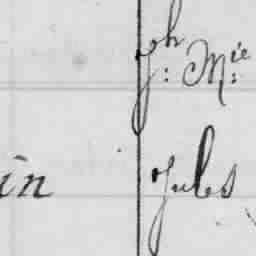 Jh: Mie:
in Jules